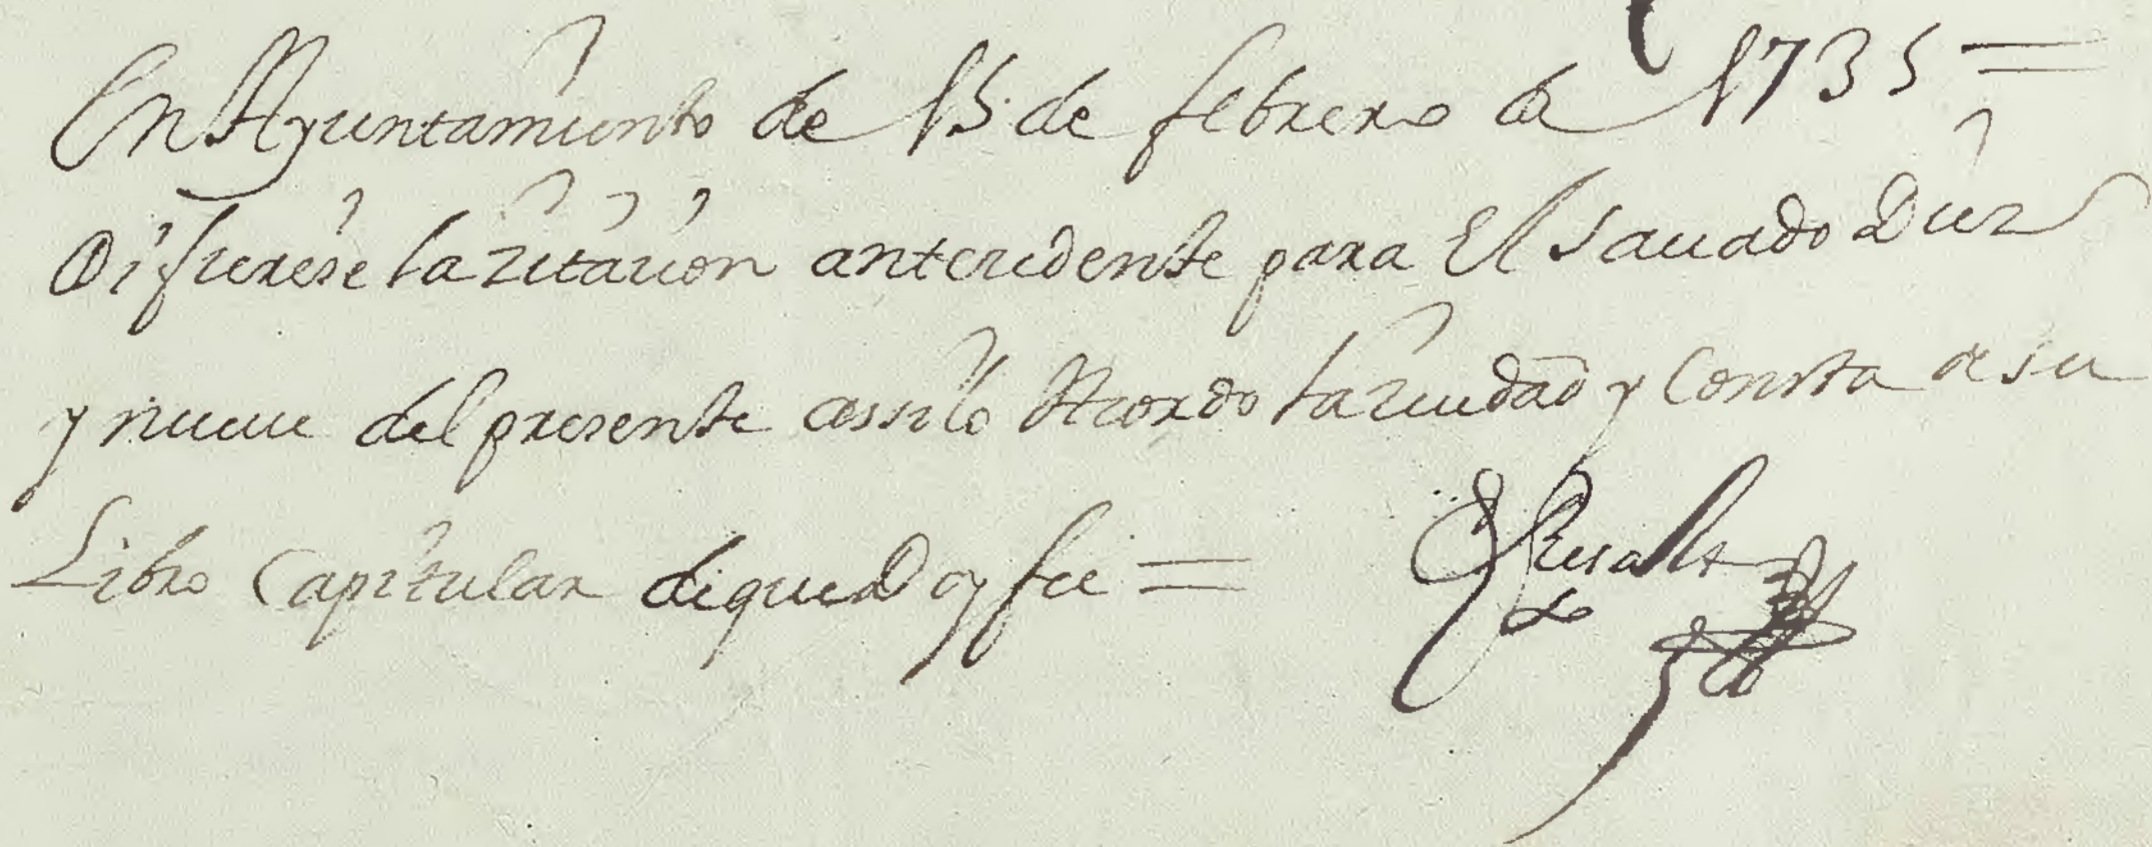 En Ayuntamiento de 15 de febrero de 1735 =
Difierese la zitacion antecedente para El Sauado Diez
y nueue del presente assi lo Acordo la ziudad y Consta de su
Libro Capitular de que Doy fee =